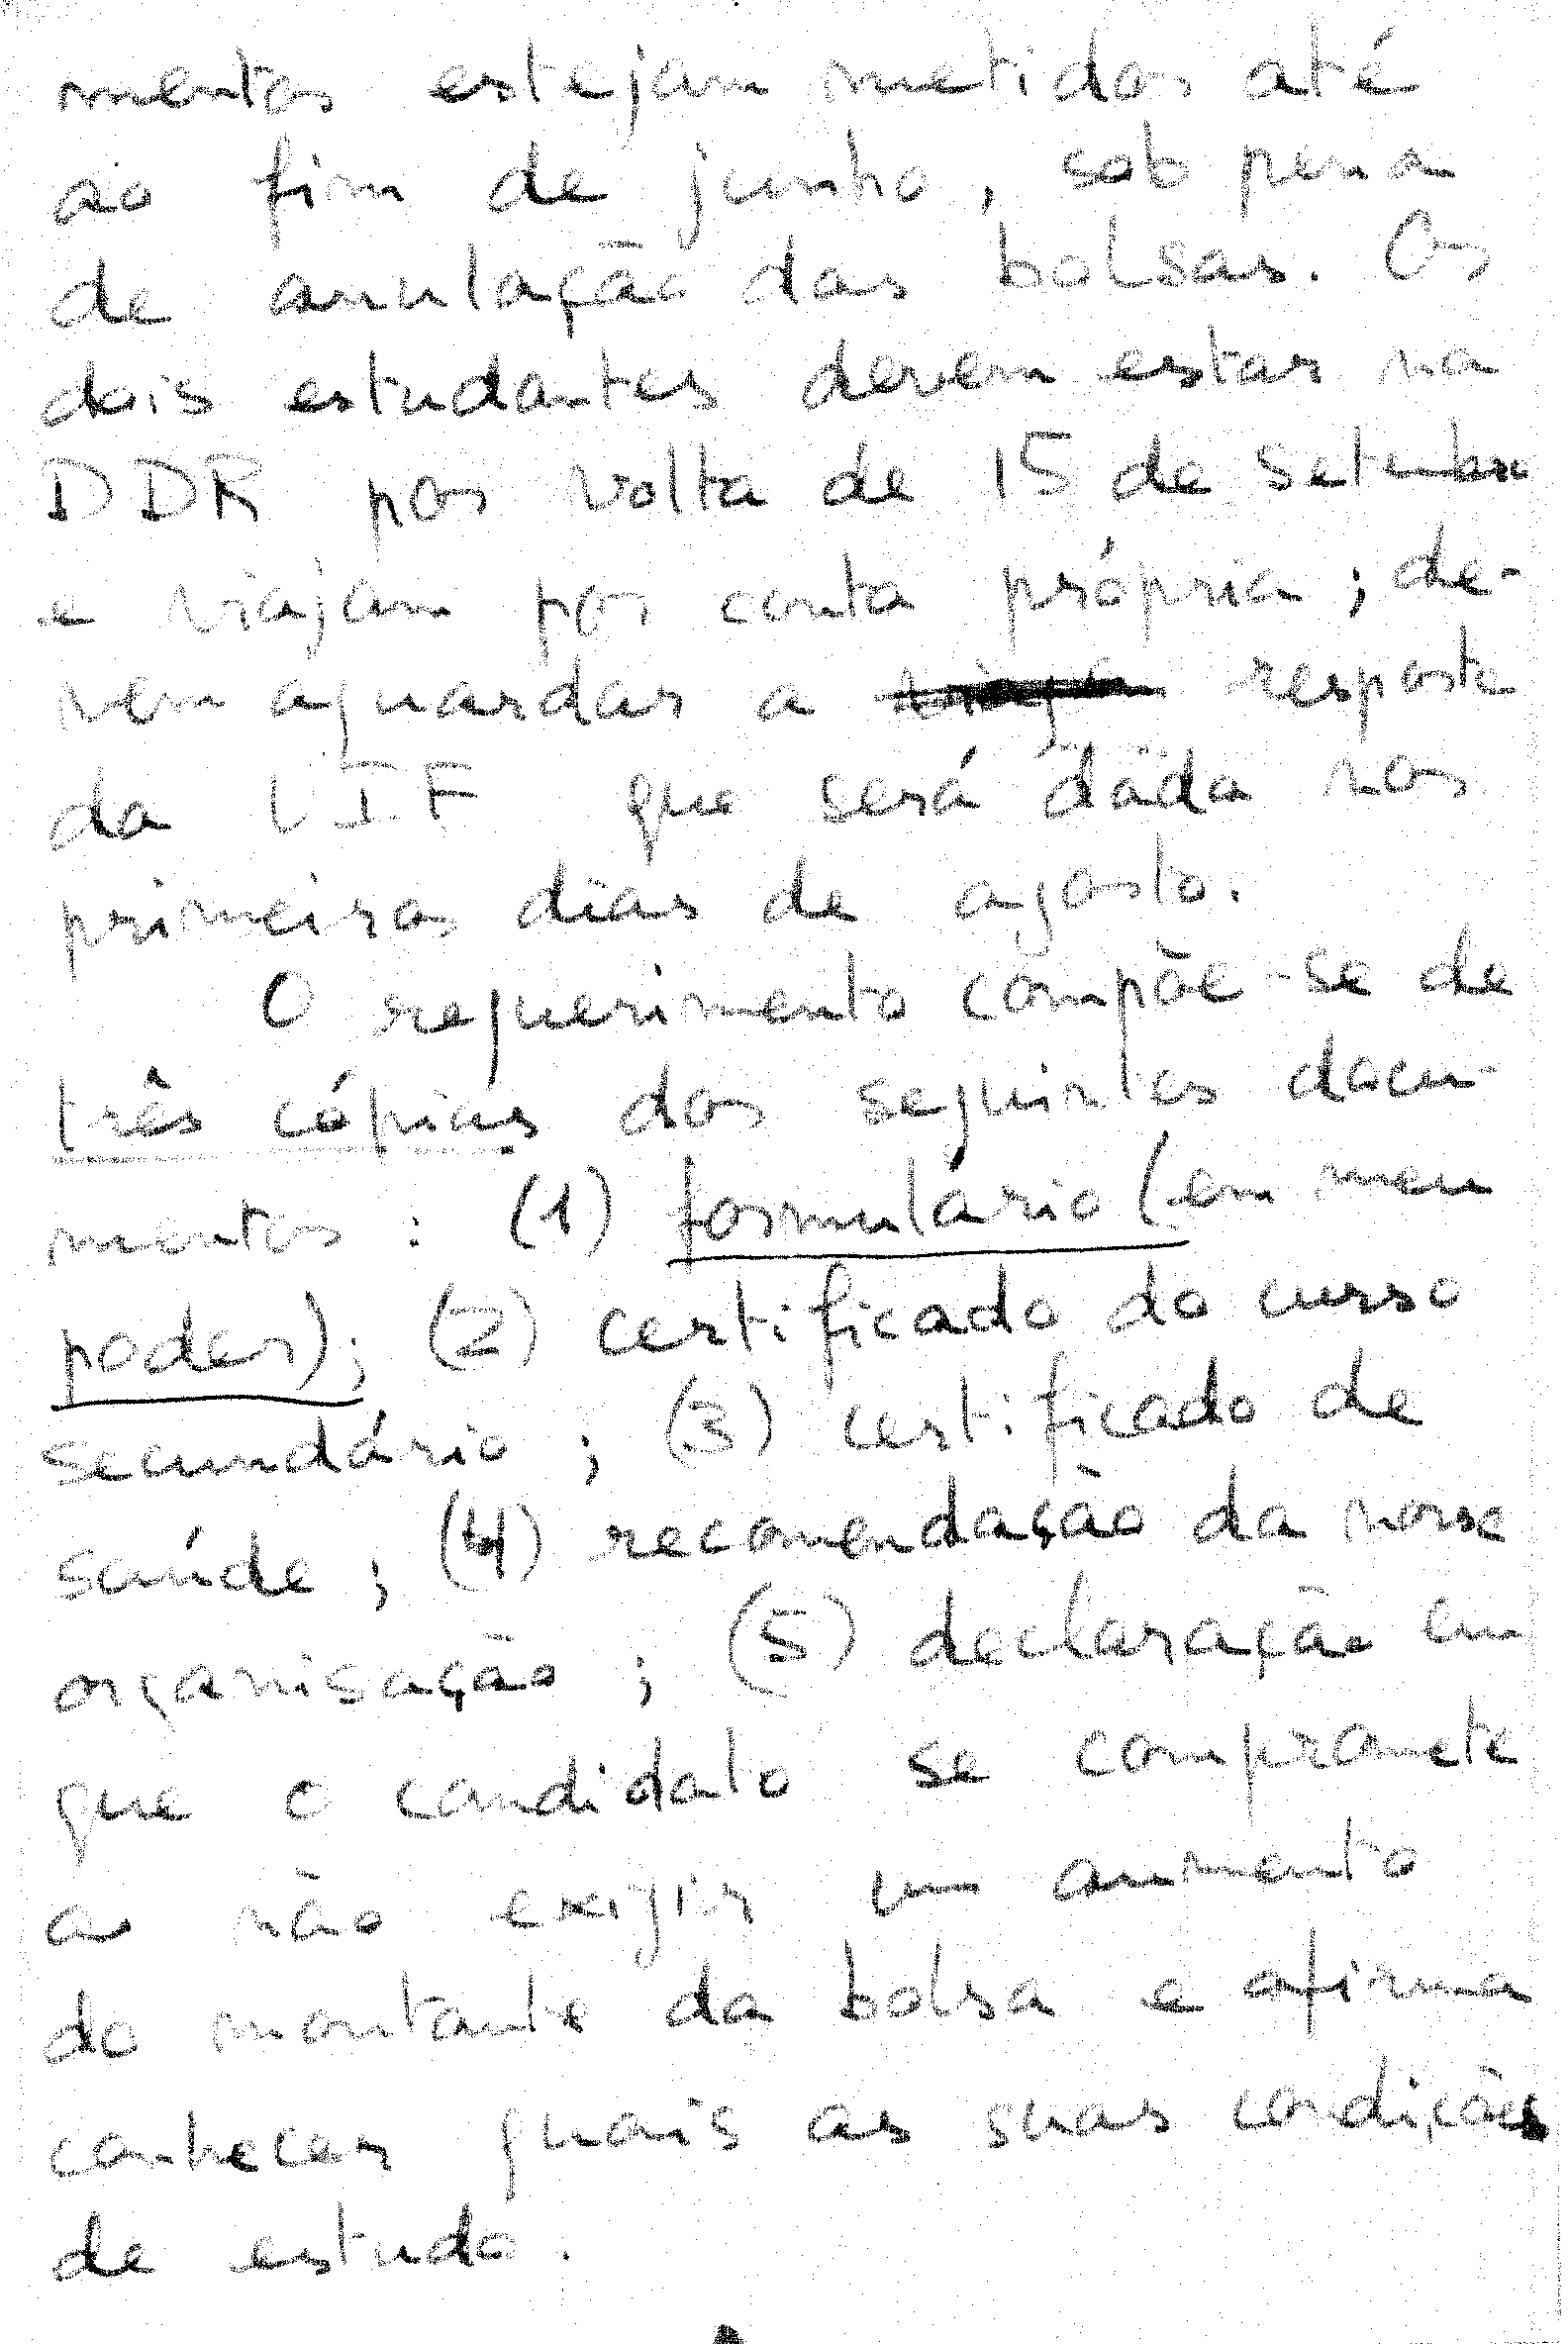 mentos estejam metidos até
ao fim de junho, sob pena
de anulação das bolsas. Os
dois estudantes devem estar na
DDR por volta de 15 de setembro
e viajam por conta própria; de-
vem aguardar a resposta
da UIE que será dada nos
primeiros dias de agosto.
O requerimento compõe-se de
três cópias dos seguintes docu-
mentos : (1) formulário (em meu
poder); (2) certificado do curso
secundário ; (3) certificado de
saúde ; (4) recomendação da nossa
organisação ; (5) declaração em
que o candidato se compromete
a não exigir um aumento
do montante da bolsa e afirma
conhecer quais as suas condições
de estudo.